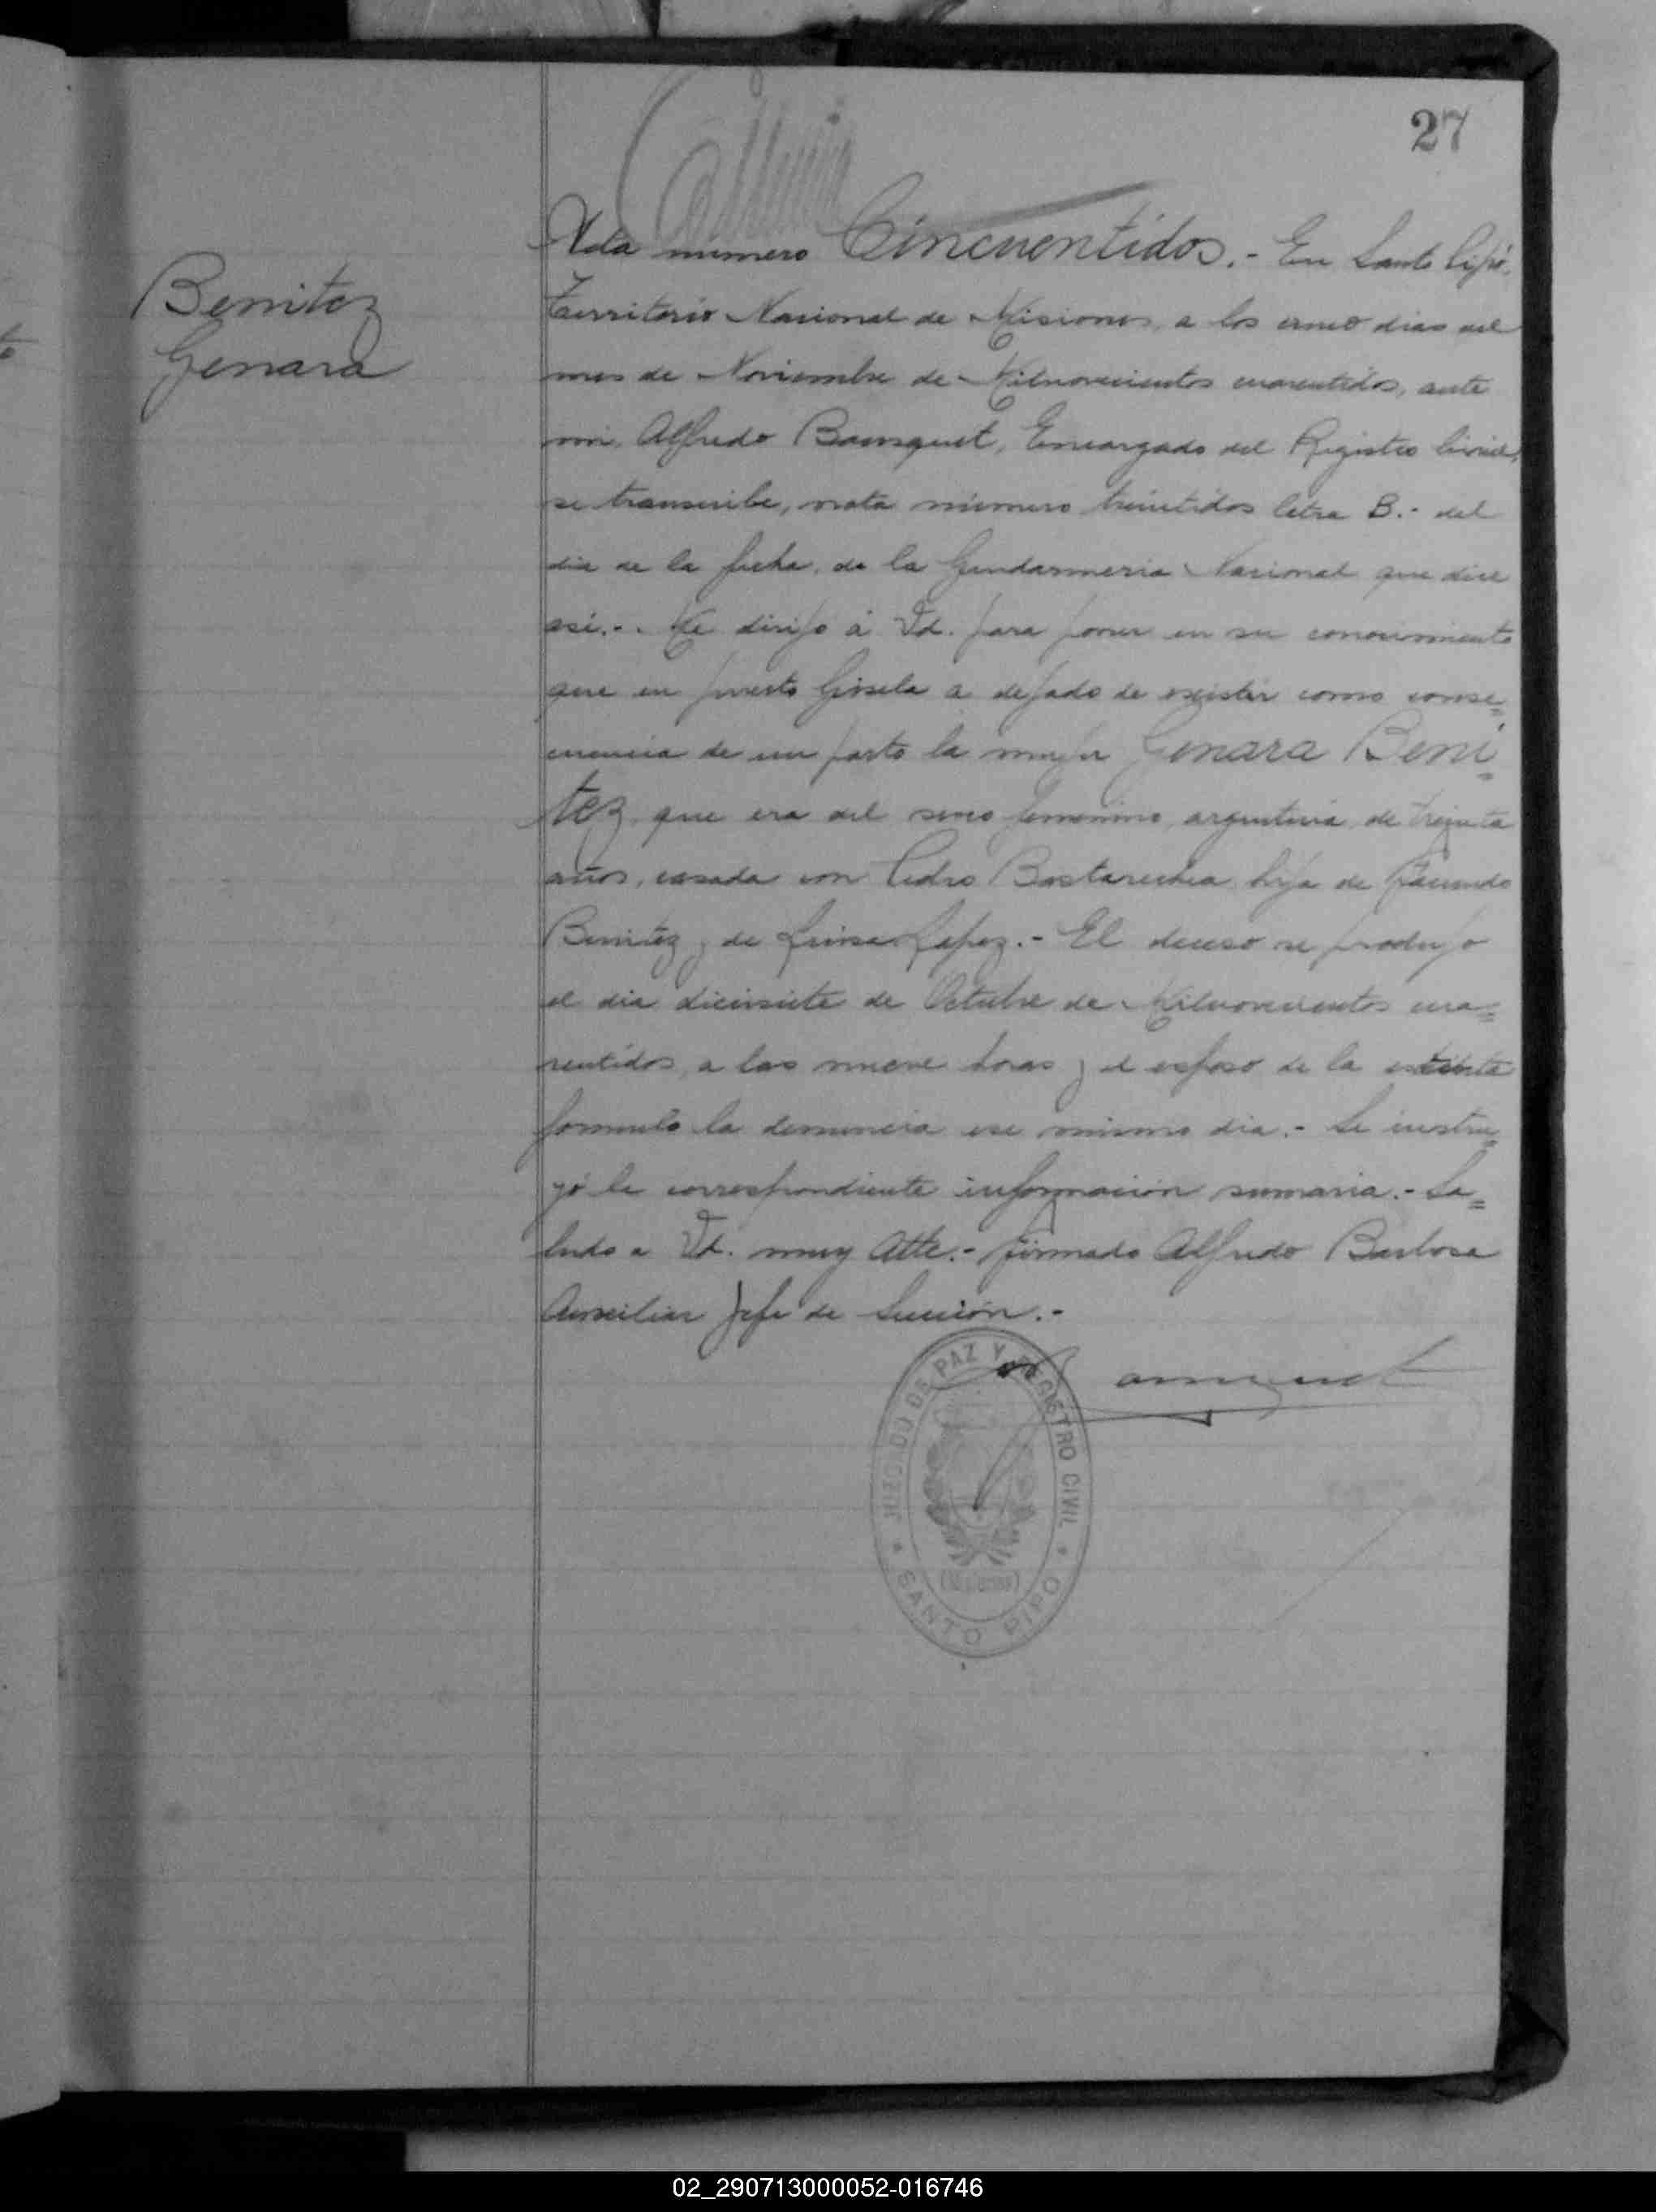 27
Benitez
Genara
Acta numero Cincuentidos.- En Santo Pipó,
Territorio Nacional de Misiones, a los cinco dias del
mes de Noviembre de Milnovecientos cuarentidos, ante
mi, Alfredo Encargado del Registro Civil,
se transcribe, nota número treintidos letra B.- del
dia de la fecha, de la Gendarmeria Nacional que dice
asi.- Me dirijo á Vd. para poner en su conocimiento
que en puerto Gisela a dejado de existir como conse=
cuencia de un parto la mujer Genara Beni=
tez, que era del sexo femenino, argentina, de treinta
años, casada con Pedro Bastarechea, hija de Facundo
Benitez y de Luisa Lopez.- El deceso se produjo
el dia diecisiete de Octubre de Milnovecientos cua=
rentidos, a las nueve horas y el esposo de la
formulo la denuncia ese mismo dia.- Se instru=
yó la correspondiente información sumaria.- Sa=
ludo a Vd. muy Atte.- firmado Alfredo Barbosa
Auxiliar Jefe de Sección.-
JUZGADO DE PAZ Y REGISTRO CIVIL
(Misiones)
* SANTO PIPO *
02_290713000052-016746